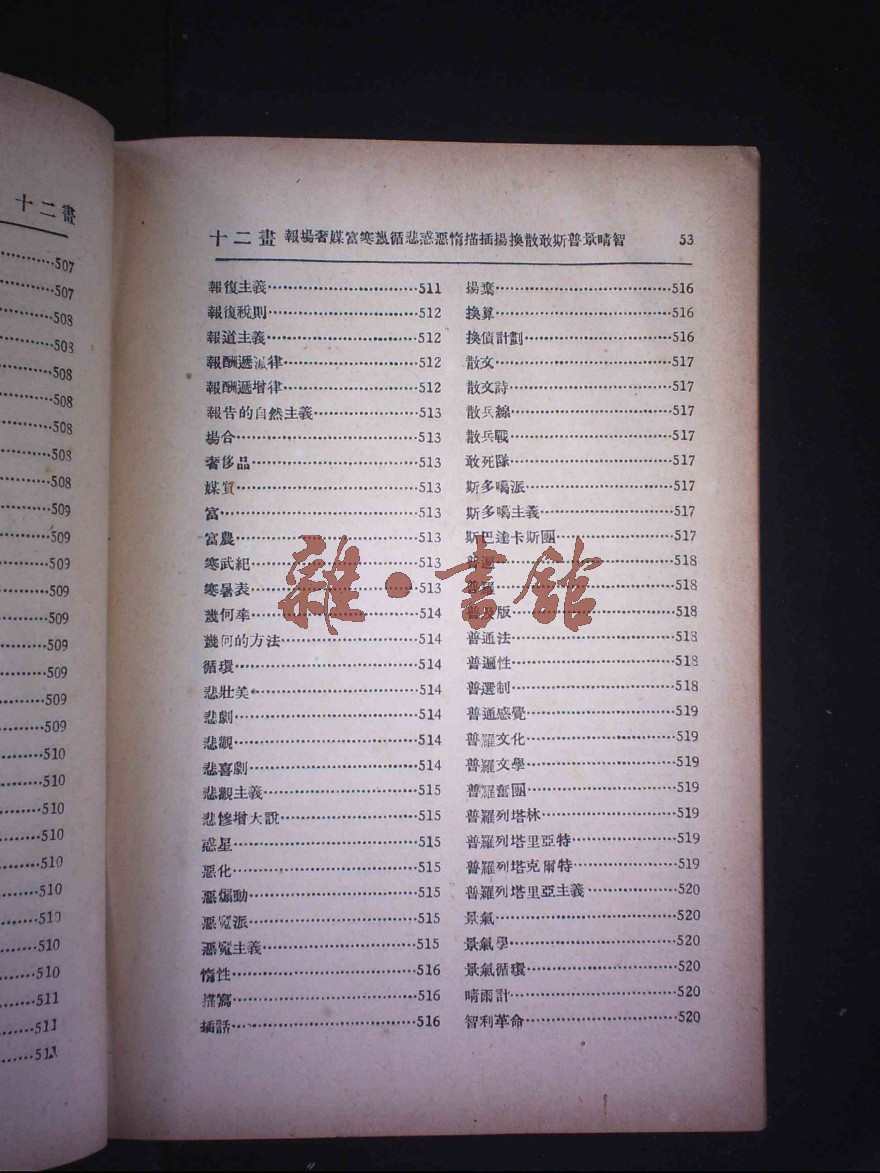 十二畫
507
507
508
503
508
508
508
508
508
509
509
509
509
509
509
509
509
509
510
510
510
510
510
510
510
510
510
511
511
511
十二畫 報場奢媒富寒幾循悲惑惡惰描插揚換散敢斯普景晴智 53
報復主義 511
報復稅則 512
報道主義 512
報酬遞減律 512
報酬遞增律 512
報告的自然主義 513
場合 513
奢侈品 513
媒質 513
富 513
富農 513
寒武紀 513
寒暑表 513
幾何率 514
幾何的方法 514
循環 514
悲壯美 514
悲劇 514
悲觀 514
悲喜劇 514
悲觀主義 515
悲慘增大說 515
惑星 515
惡化 515
惡煽動 515
惡魔派 515
惡魔主義 515
惰性 516
描寫 516
插話 516
揚棄 516
換算 516
換債計劃 516
散文 517
散文詩 517
散兵線 517
散兵戰 517
敢死隊 517
斯多噶派 517
斯多噶主義 517
斯巴達卡斯團 517
普遍 518
普羅 518
普及版 518
普通法 518
普遍性 518
普選制 518
普通感覺 519
普羅文化 519
普羅文學 519
普羅奮團 519
普羅列塔林 519
普羅列塔里亞特 519
普羅列塔克爾特 519
普羅列塔里亞主義 520
景氣 520
景氣學 520
景氣循環 520
晴雨計 520
智利革命 520
雜·書館